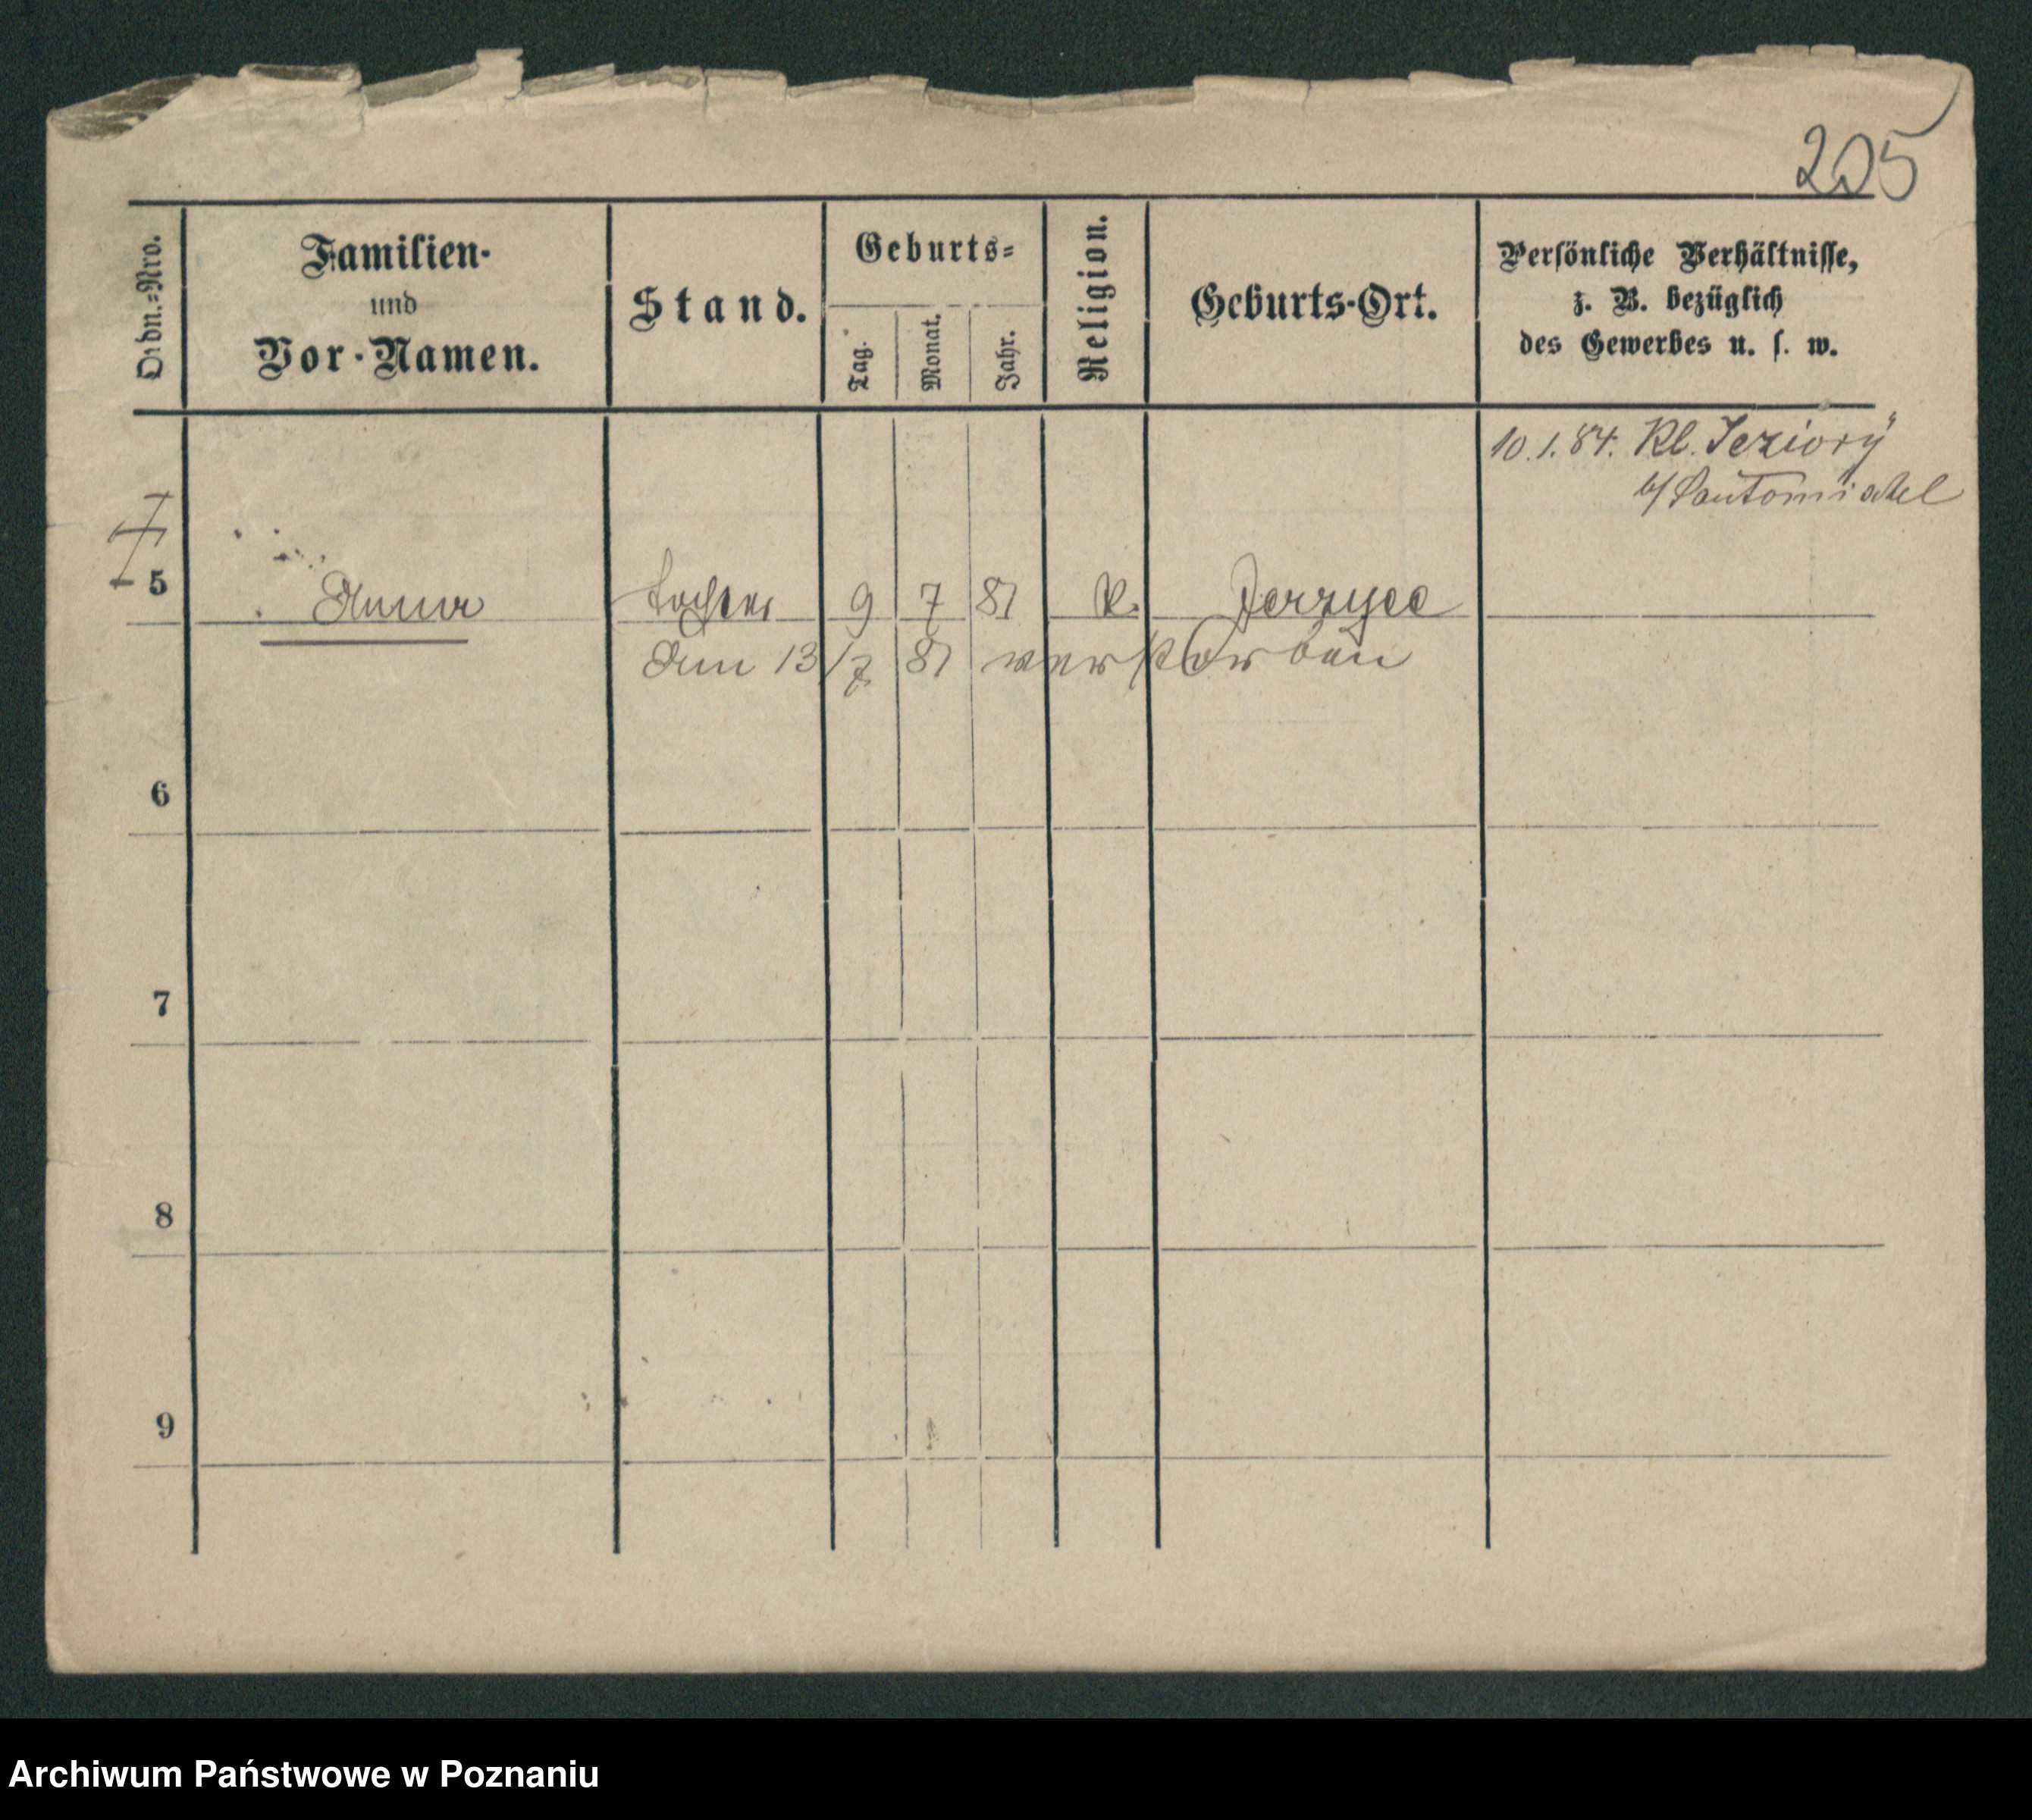 205
Ordn.=Nro.
Familien-
und
Vor-Namen.
Stand.
Geburts=
Tag.
Monat.
Jahr.
Religion.
Geburts-Ort.
Persönliche Verhältnisse,
z. B. bezüglich
des Gewerbes u. s. w.
10.1.84. Kl. Jeziory
b/ Santomischel
5 Anna Tochter 9 7 81 K. Jerzyce
Am 13/7 81 verstorben
6
7
8
9
Archiwum Państwowe w Poznaniu